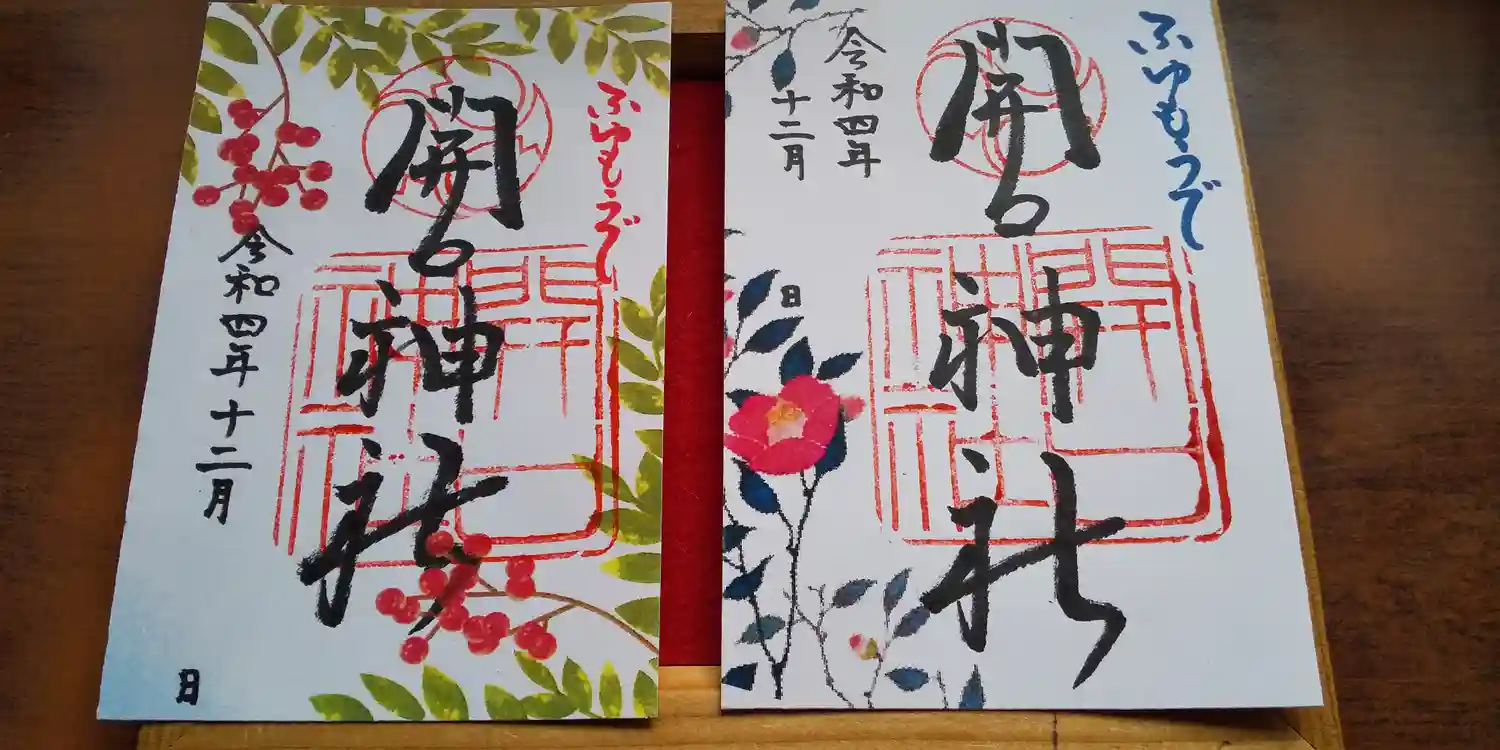 ふゆもうで
開口神社
令和四年
十二月
日
ふゆもうで
開口神社
令和四年
十二月
日